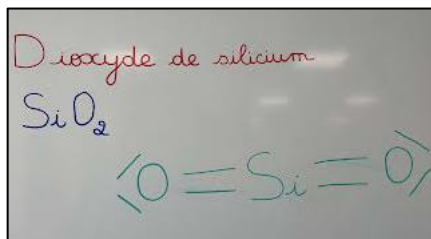 Dioxyde de silicium
SiO₂
O = Si = O